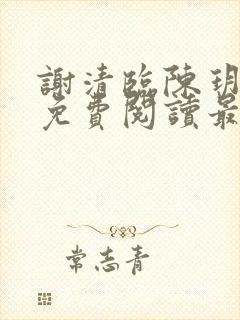 謝清臨陳玥
免費閱讀最
常志青